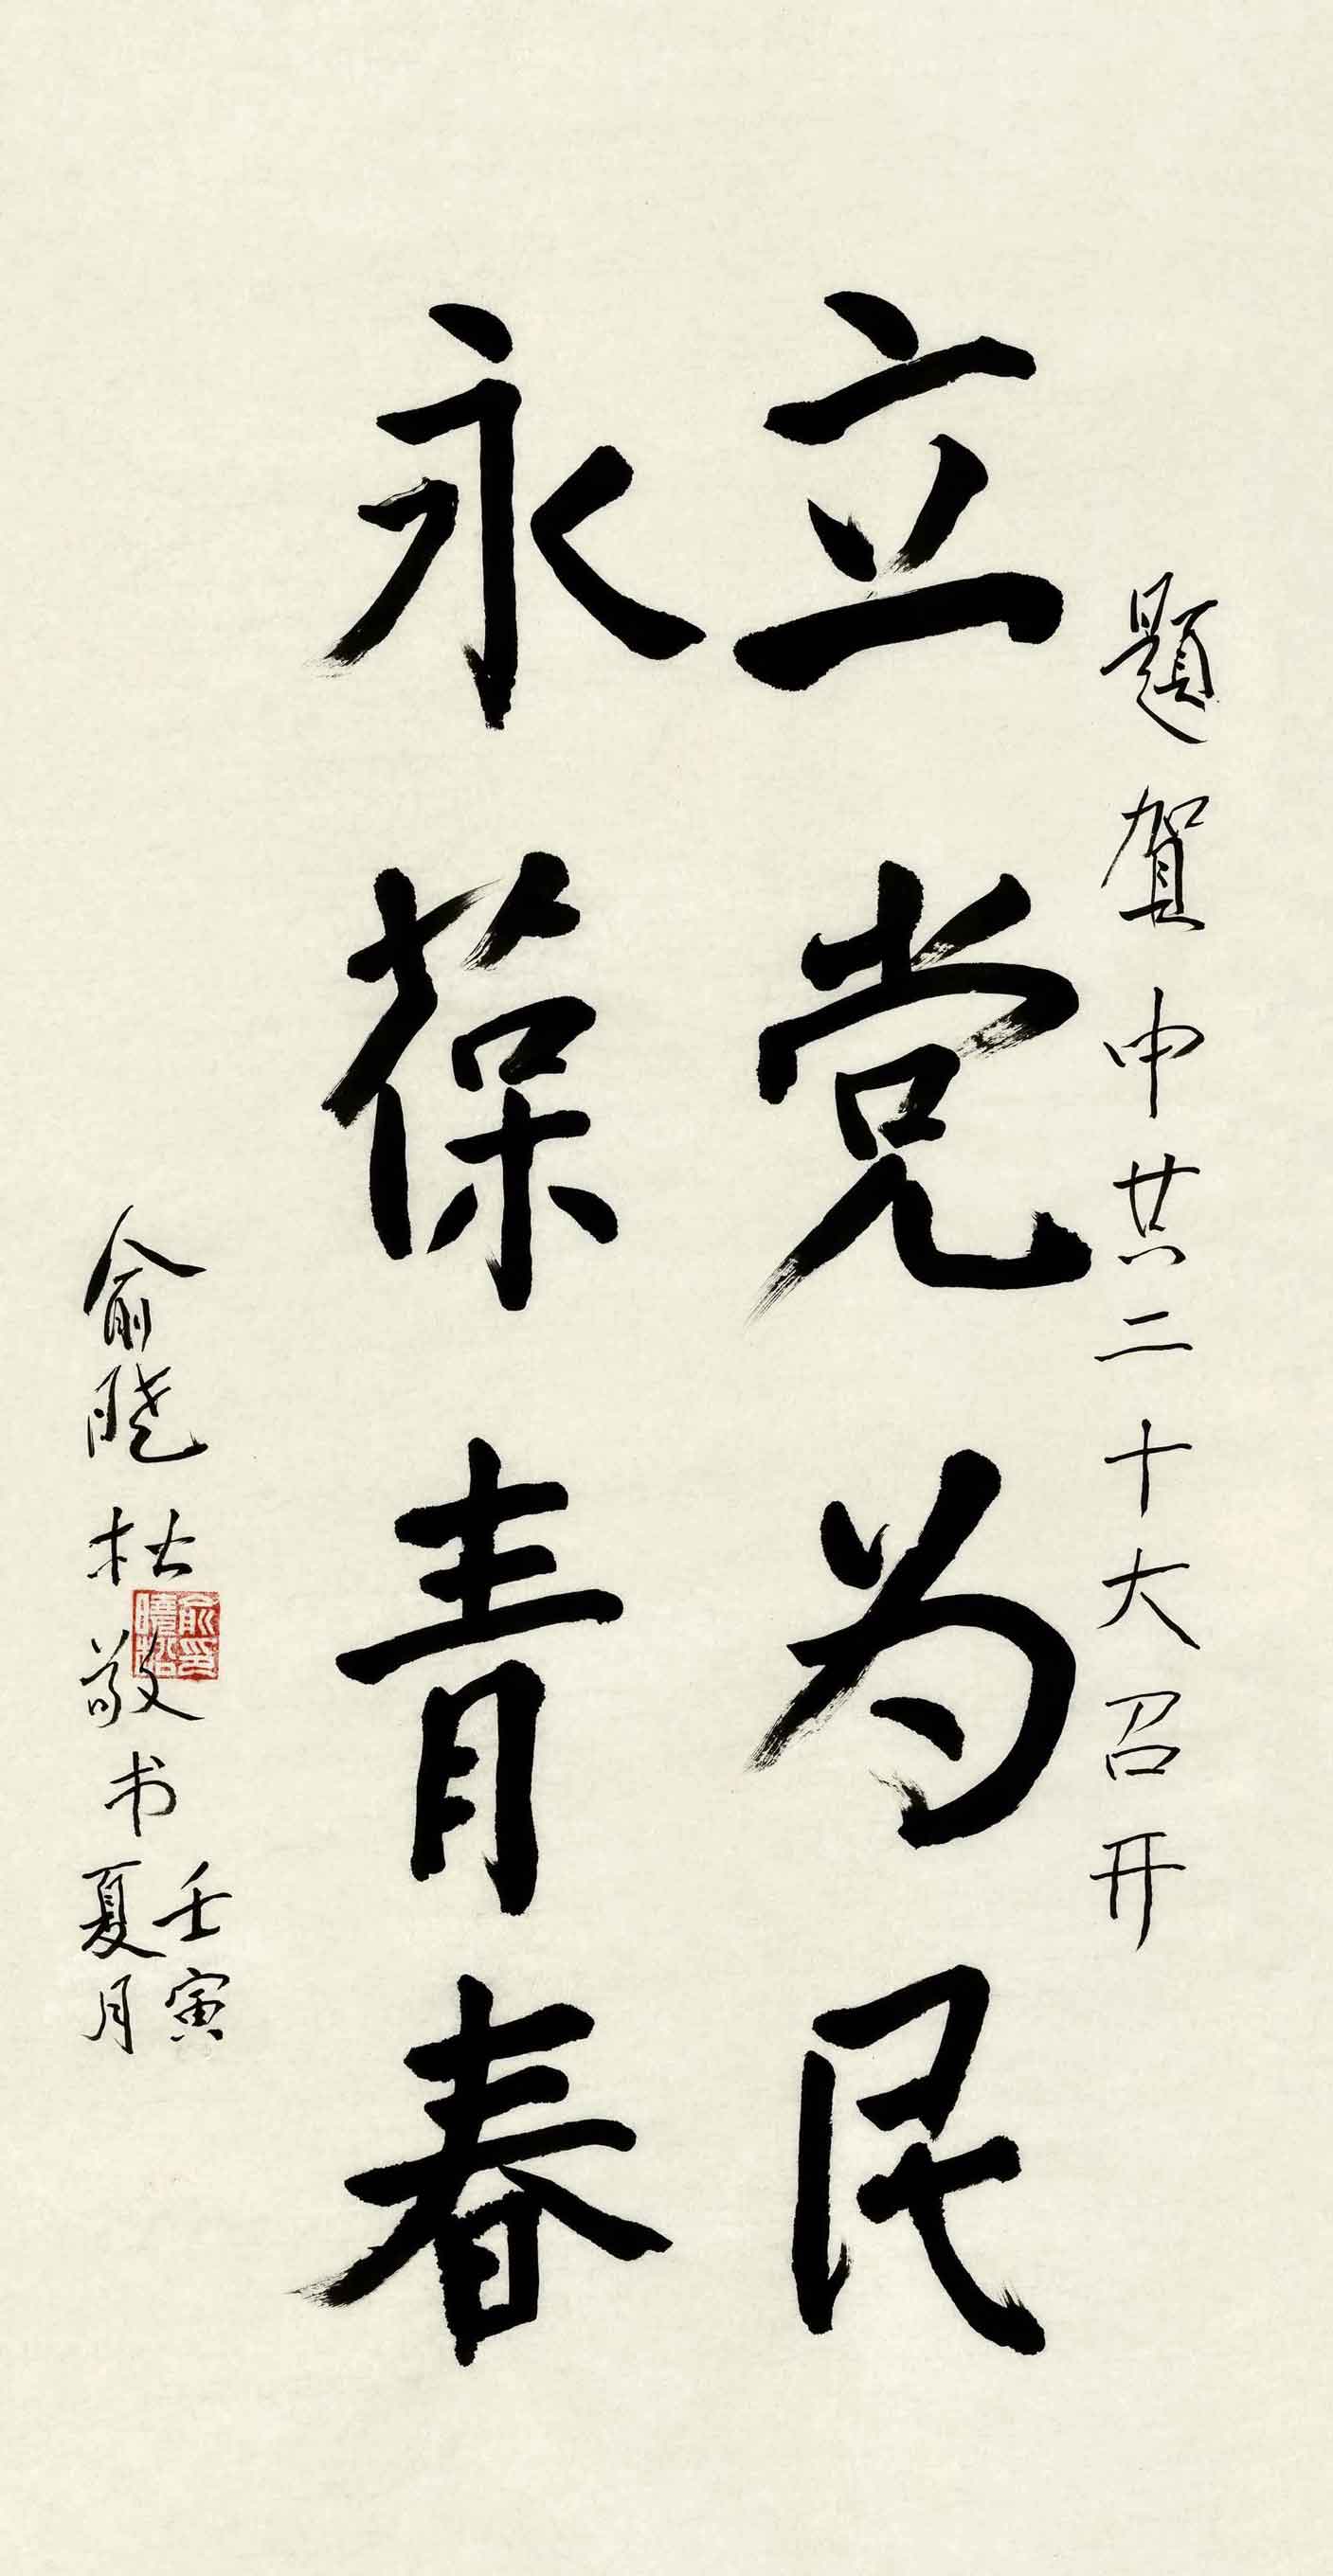 题贺中共二十大召开
立党为民
永葆青春
俞晓松敬书
壬寅
夏月
俞印
曉松